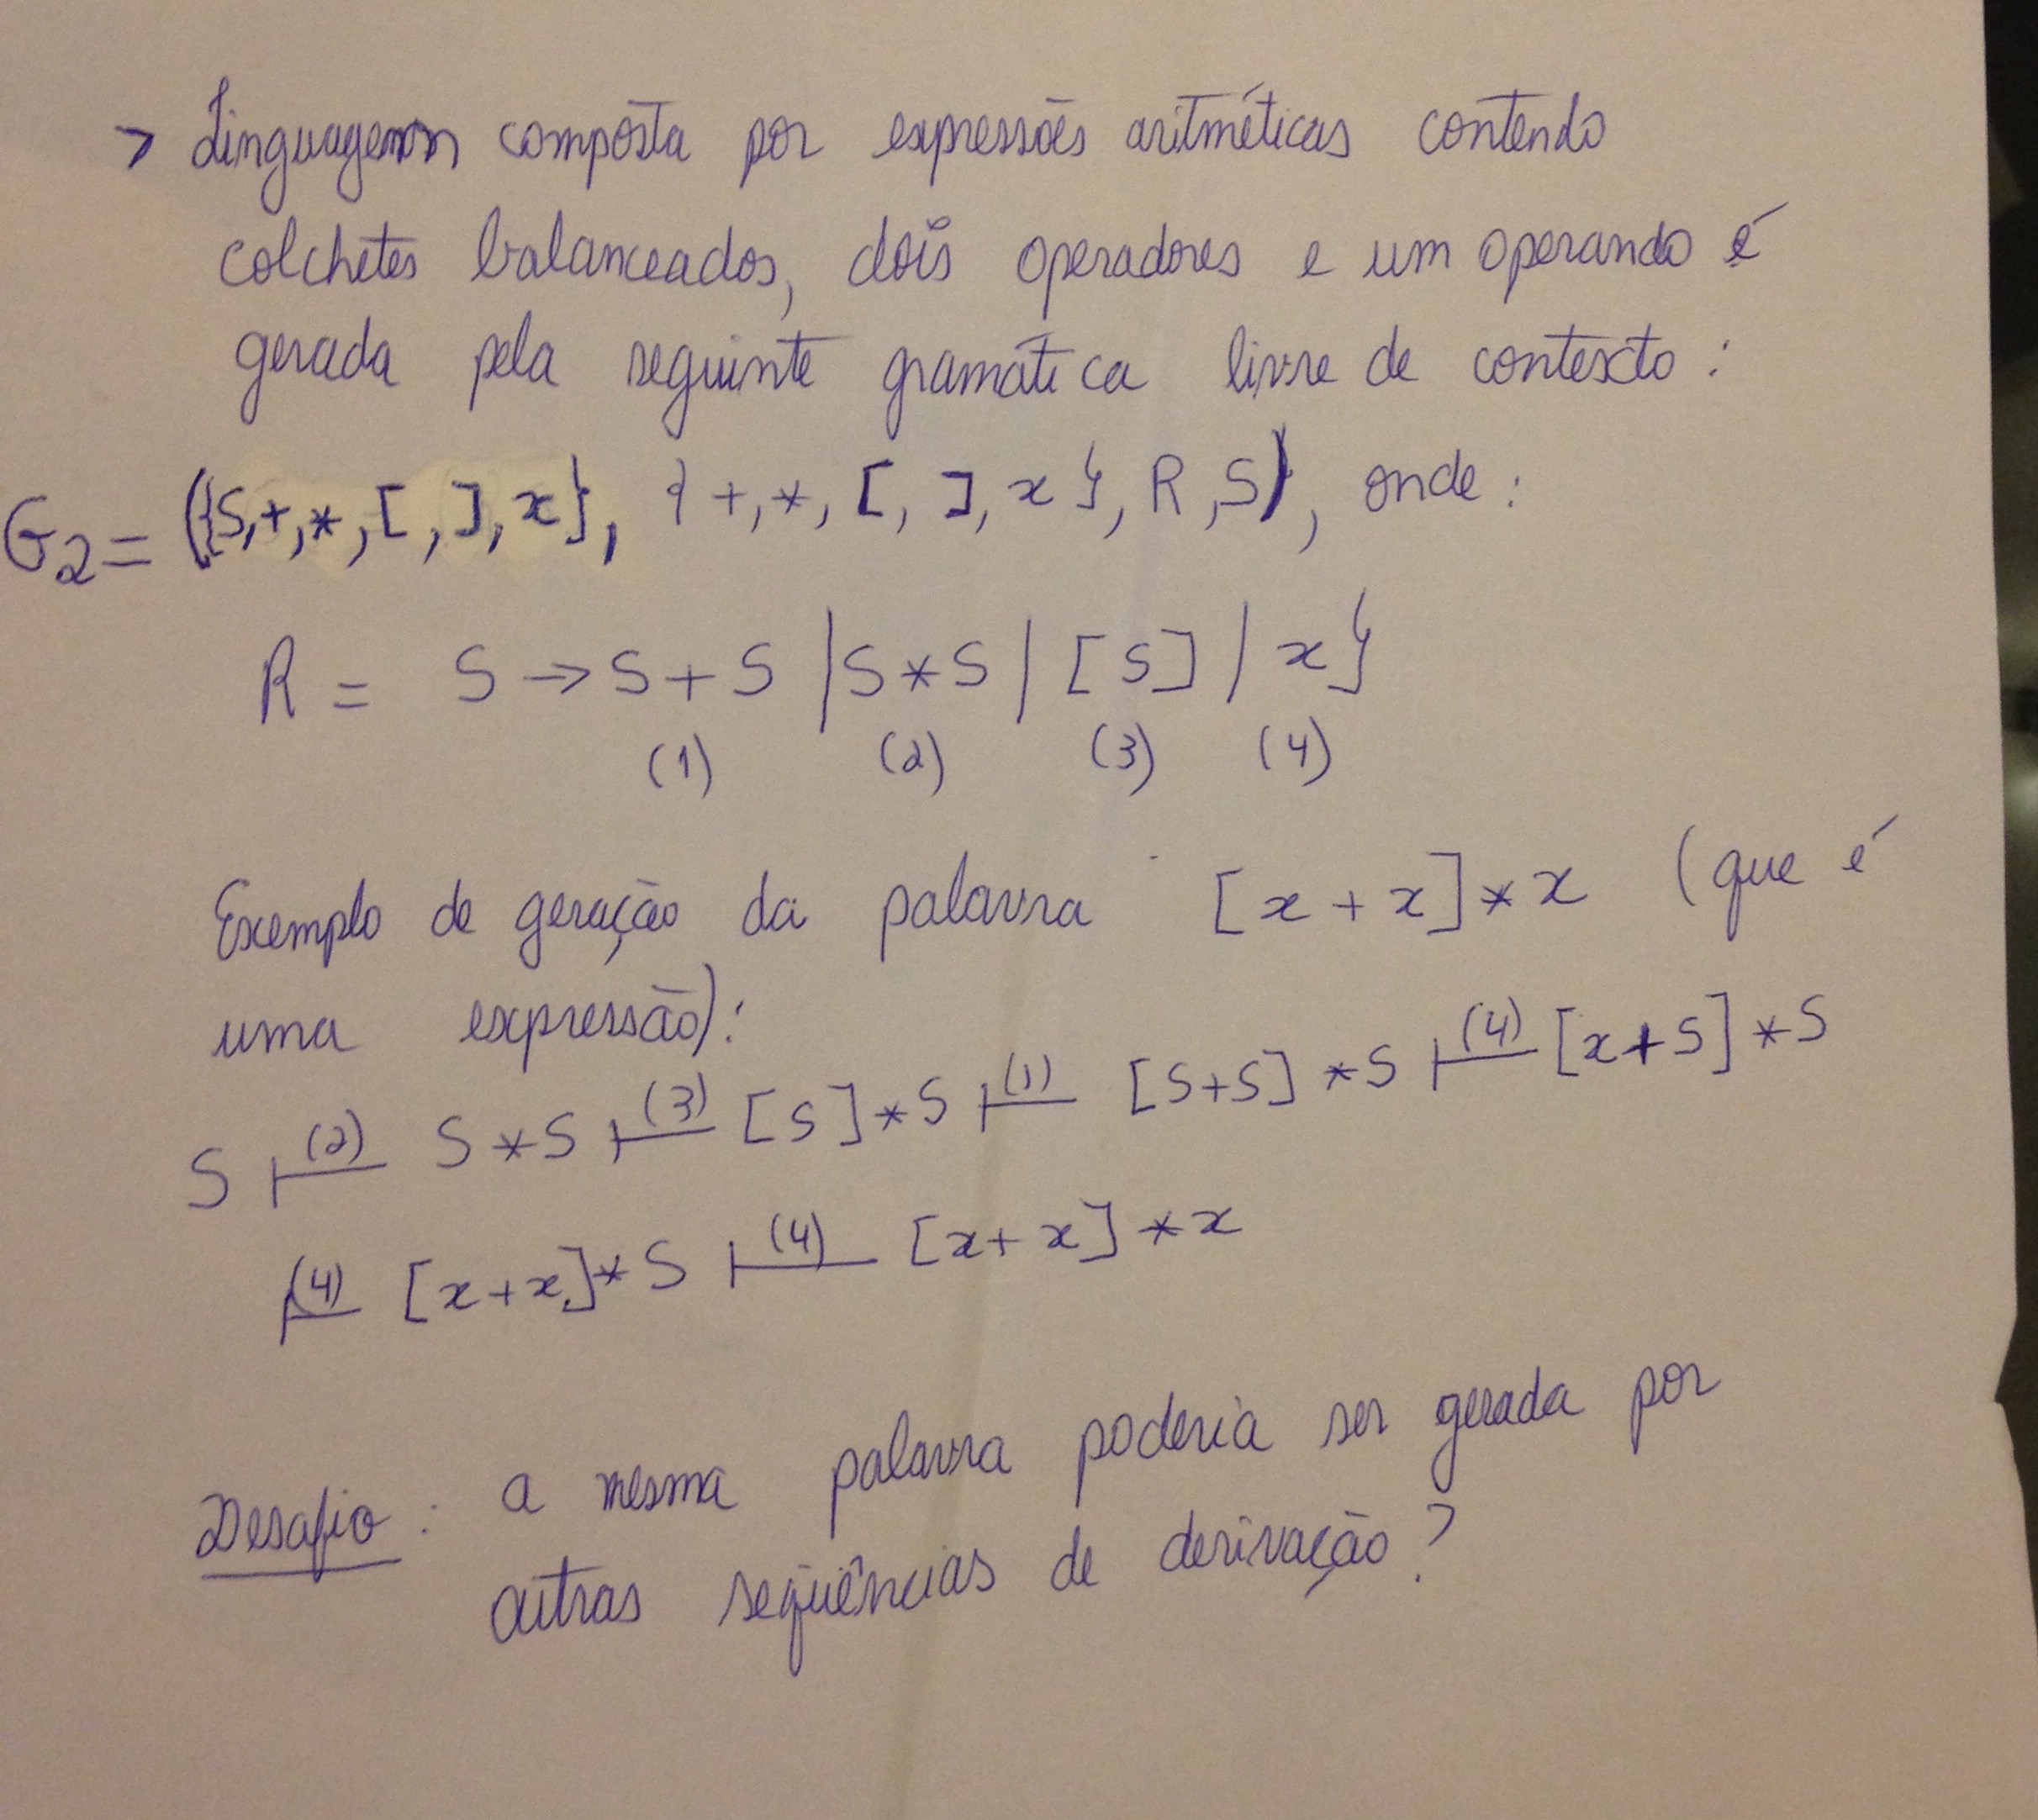 > Linguagem composta por expressões aritméticas contendo
colchetes balanceados, dois operadores e um operando é
gerada pela seguinte gramática livre de contexto:
G2 = ({S,+,*,[,],x}, {+,*,[,],x}, R,S), onde:
R = S → S+S | S*S | [S] | x}
(1) (2) (3) (4)
Exemplo de geração da palavra [x+x]*x (que é
uma expressão):
S ⊢(2) S*S ⊢(3) [S]*S ⊢(1) [S+S]*S ⊢(4) [x+S]*S
⊢(4) [x+x]*S ⊢(4) [x+x]*x
Desafio: a mesma palavra poderia ser gerada por
outras seqüências de derivação?